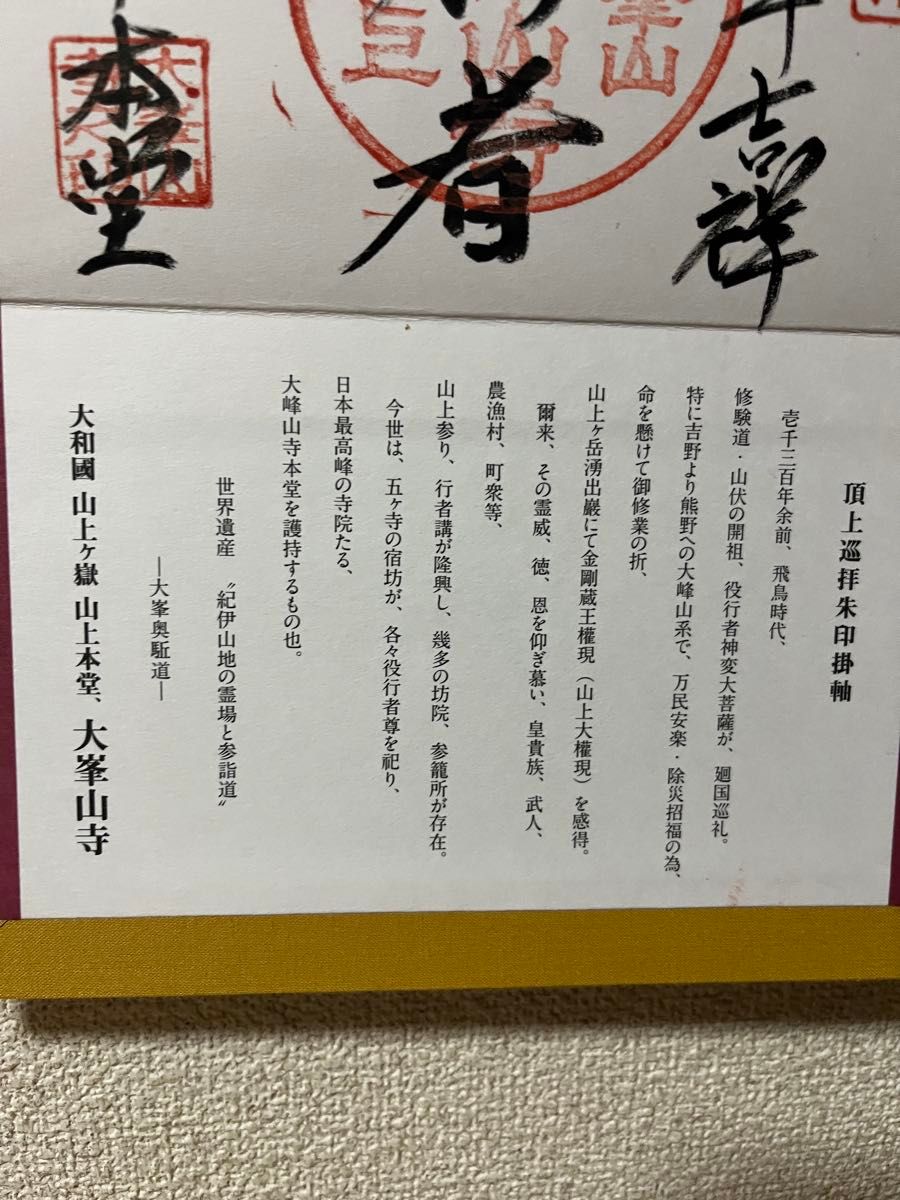 吉祥
者
本堂
頂上巡拝朱印掛軸
壱千三百年余前、飛鳥時代、
修験道・山伏の開祖、役行者神変大菩薩が、廻国巡礼。
特に吉野より熊野への大峰山系で、万民安楽・除災招福の為、
命を懸けて御修業の折、
山上ヶ岳湧出巖にて金剛蔵王権現（山上大権現）を感得。
爾来、その霊威、徳、恩を仰ぎ慕い、皇貴族、武人、
農漁村、町衆等、
山上参り、行者講が隆興し、幾多の坊院、参籠所が存在。
今世は、五ヶ寺の宿坊が、各々役行者尊を祀り、
日本最高峰の寺院たる、
大峰山寺本堂を護持するもの也。
世界遺産 〝紀伊山地の霊場と参詣道〟
―大峯奥駈道―
大和國 山上ヶ嶽 山上本堂、大峯山寺